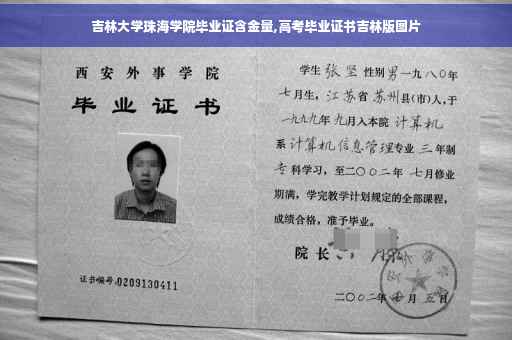 吉林大学珠海学院毕业证含金量,高考毕业证书吉林版图片
西安外事学院
毕业证书
证书编号:0209130411
学生 张坚 性别 男 一九八〇年
七月生, 江苏省 苏州县(市)人,于
一九九九年 九月入本院 计算机
系 计算机信息管理专业 三 年制
专科学习,至二〇〇二年 七月修业
期满,学完教学计划规定的全部课程,
成绩合格,准予毕业。
院长
二〇〇二年 月 五日